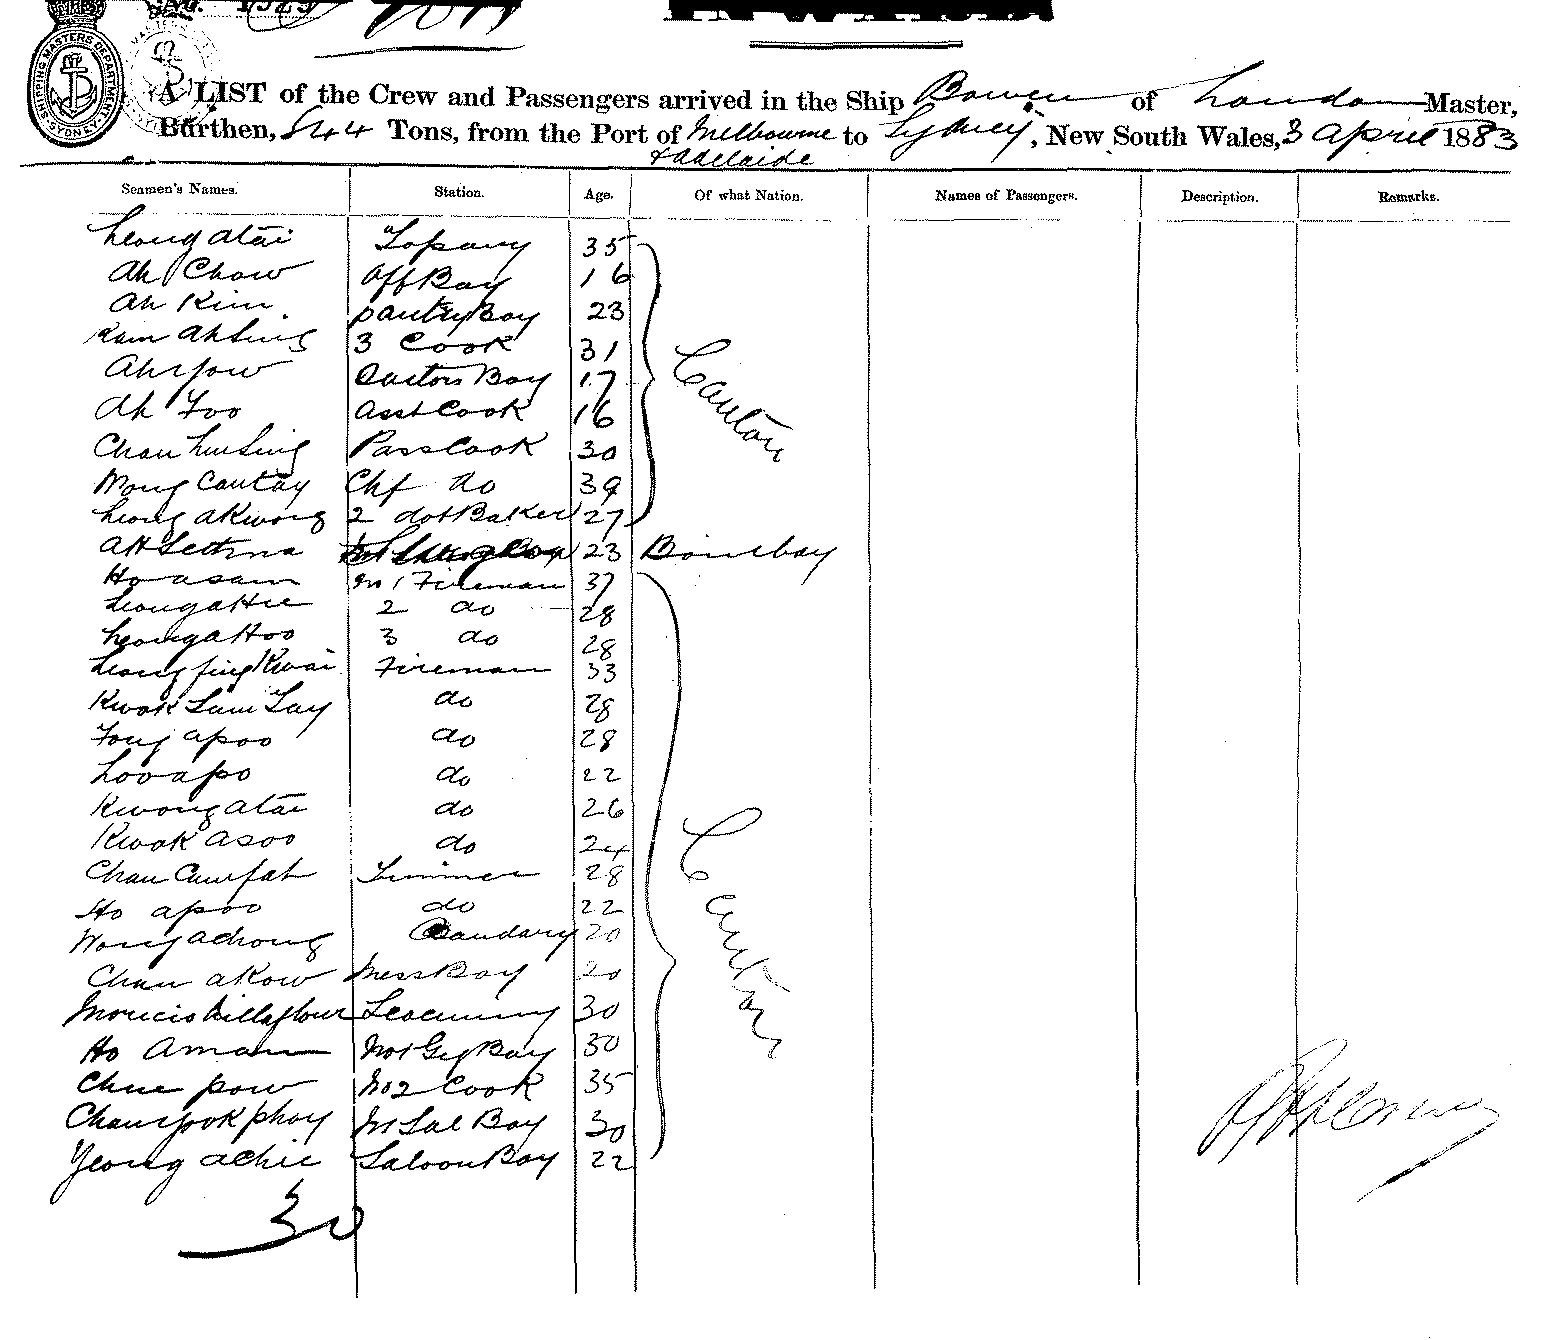 No. 1529
SHIPPING MASTERS DEPARTMENT SYDNEY
A LIST of the Crew and Passengers arrived in the Ship Bowen of London Master,
Burthen, 844 Tons, from the Port of Melbourne to Sydney, New South Wales, 3 April 1883
& Adelaide
Seamen's Names. Station. Age. Of what Nation. Names of Passengers. Description. Remarks.
Leong Atai 35
Ah Chow Off Boy 16
Ah Kim pantry Boy 23
Kum Ah Sing 3 Cook 31
Ah Yow Boy 17
Canton
Ah Foo Asst Cook 16
Chau Sing Pass Cook 30
Wong Cantay Chf do 39
Leong Akwong 2 do & Baker 27
23 Bombay
Ho Asam No 1 Fireman 37
Leong a Hie 2 do 28
Leong a Hoo 3 do 28
Leong Jing Kwai Fireman 33
Kwok Lam Tay do 28
Fong Apoo do 28
Loo Apo do 22
Kwong Atai do 26
Kwok Asoo do 24
Canton
Chau Camfat Trimmer 28
Ho Apoo do 22
Wong Achong 20
Chau Akow Mess Boy 20
30
Ho Aman Boy 30
Chue pow No 2 Cook 35
Chau Yook phoy Sal Boy 30
Yeong Achie Saloon Boy 22
30